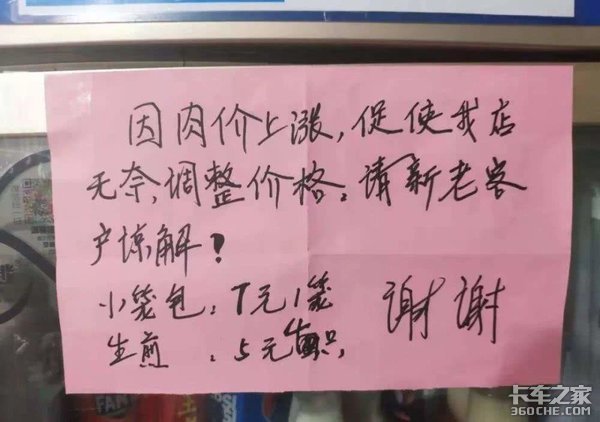 因肉价上涨，促使我店
无奈，调整价格：请新老客
户谅解！
小笼包：7元1笼
生煎：5元4只，
谢谢
FANTA
卡车之家
360CHE.COM